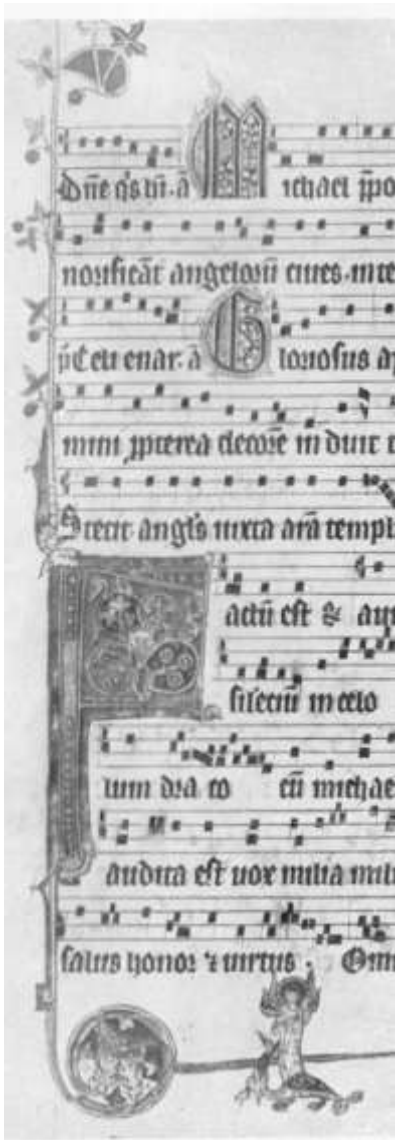 Dn̄e q̄s m̄. ā Michael p̄po
norificāt angelorū ciues. inte
p̄ Celi enar. ā Gloriosus ap
mini p̄pterea decorē in duit
Stetit angl's iuxta arā templ
Factū est & au
silēciū in celo
tum dra co cū michae
audita est uox milia mil
salus honor & uirtus. Omn